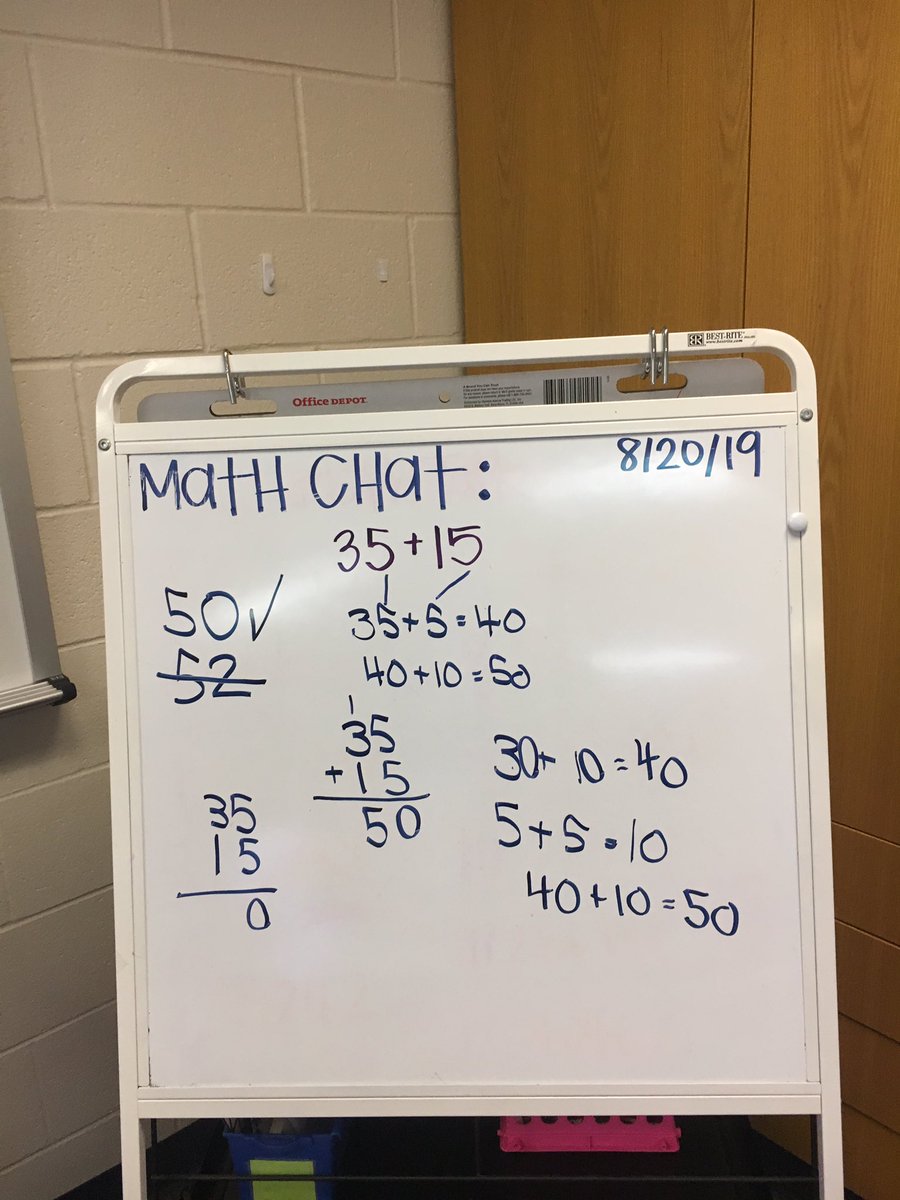 BEST-RITE
www.bestrite.com
Office DEPOT
MatH CHat:
8/20/19
35+15
50✓
52
35+5=40
40+10=50
1
35
+15
50
35
15
0
30+10=40
5+5=10
40+10=50